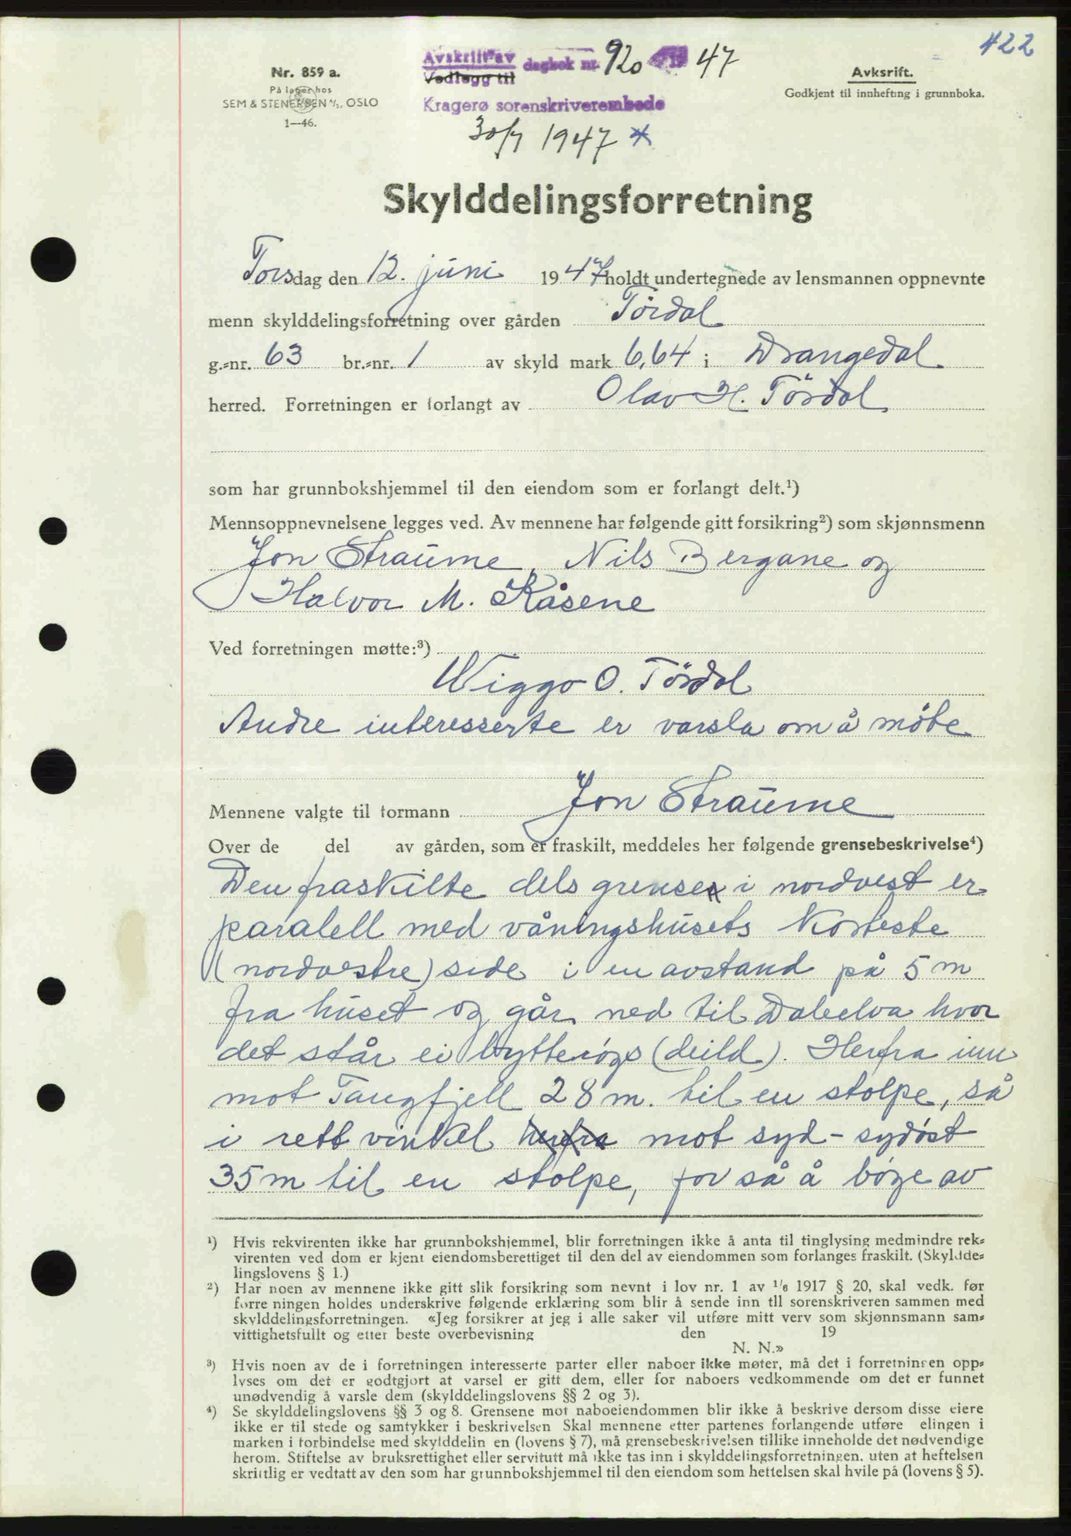 422
Nr. 859 a.
På lager hos
SEM & STENERSEN A/S, OSLO
1—46.
Avskrift av
Vedlegg til
dagbok nr. 920 1947
Kragerø sorenskriverembede
30/7 1947 *
Avksrift.
Godkjent til innhefting i grunnboka.
Skylddelingsforretning
Torsdag den 12. juni 1947 holdt undertegnede av lensmannen oppnevnte
menn skylddelingsforretning over gården Tørdal
g.=nr. 63 br.=nr. 1 av skyld mark 6,64 i Drangedal
herred. Forretningen er forlangt av Olav H. Tørdal
som har grunnbokshjemmel til den eiendom som er forlangt delt.¹)
Mennsoppnevnelsene legges ved. Av mennene har følgende gitt forsikring²) som skjønnsmenn
Jon Straume, Nils Bergane og
Halvor M. Kåsene
Ved forretningen møtte:³)
Wiggo O. Tørdal
Andre interesserte er varsla om å møte
Mennene valgte til formann Jon Straume
Over de del av gården, som er fraskilt, meddeles her følgende grensebeskrivelse⁴)
Den fraskilte dels grense i nordvest er
paralell med våningshusets
(nordvestre) side i en avstand på 5 m
fra huset og går ned til Daleelva hvor
det står ei bytterøys (deild). Herfra inn
mot Tangfjell 28 m. til en stolpe, så
i rett vinkel herfra mot syd - sydøst
35 m til en stolpe, for så å bøye av
¹) Hvis rekvirenten ikke har grunnbokshjemmel, blir forretningen ikke å anta til tinglysing medmindre rek=
virenten ved dom er kjent eiendomsberettiget til den del av eiendommen som forlanges fraskilt. (Skyldde=
lingslovens § 1.)
²) Har noen av mennene ikke gitt slik forsikring som nevnt i lov nr. 1 av 1/6 1917 § 20, skal vedk. før
forretningen holdes underskrive følgende erklæring som blir å sende inn til sorenskriveren sammen med
skylddelingsforretningen. «Jeg forsikrer at jeg i alle saker vil utføre mitt verv som skjønnsmann sam=
vittighetsfullt og etter beste overbevisning den 19
N. N.»
³) Hvis noen av de i forretningen interesserte parter eller naboer ikke møter, må det i forretningen opp=
lyses om det er godtgjort at varsel er gitt dem, eller for naboers vedkommende om det er funnet
unødvendig å varsle dem (skylddelingslovens §§ 2 og 3).
⁴) Se skylddelingslovens §§ 3 og 8. Grensene mot naboeiendommen blir ikke å beskrive dersom disse eiere
ikke er til stede og samtykker i beskrivelsen Skal mennene etter partenes forlangende utføre elingen i
marken i forbindelse med skylddelin en (lovens § 7), må grensebeskrivelsen tillike inneholde det nødvendige
herom. Stiftelse av bruksrettighet eller servitutt må ikke tas inn i skylddelingsforretningen, uten at heftelsen
skriftlig er vedtatt av den som har grunnbokshjemmel til den eiendom som heftelsen skal hvile på (lovens § 5).